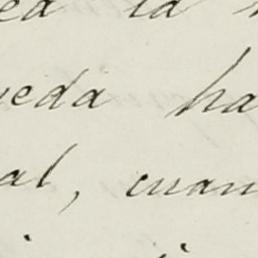 ed la
ueda ha
al, cuan